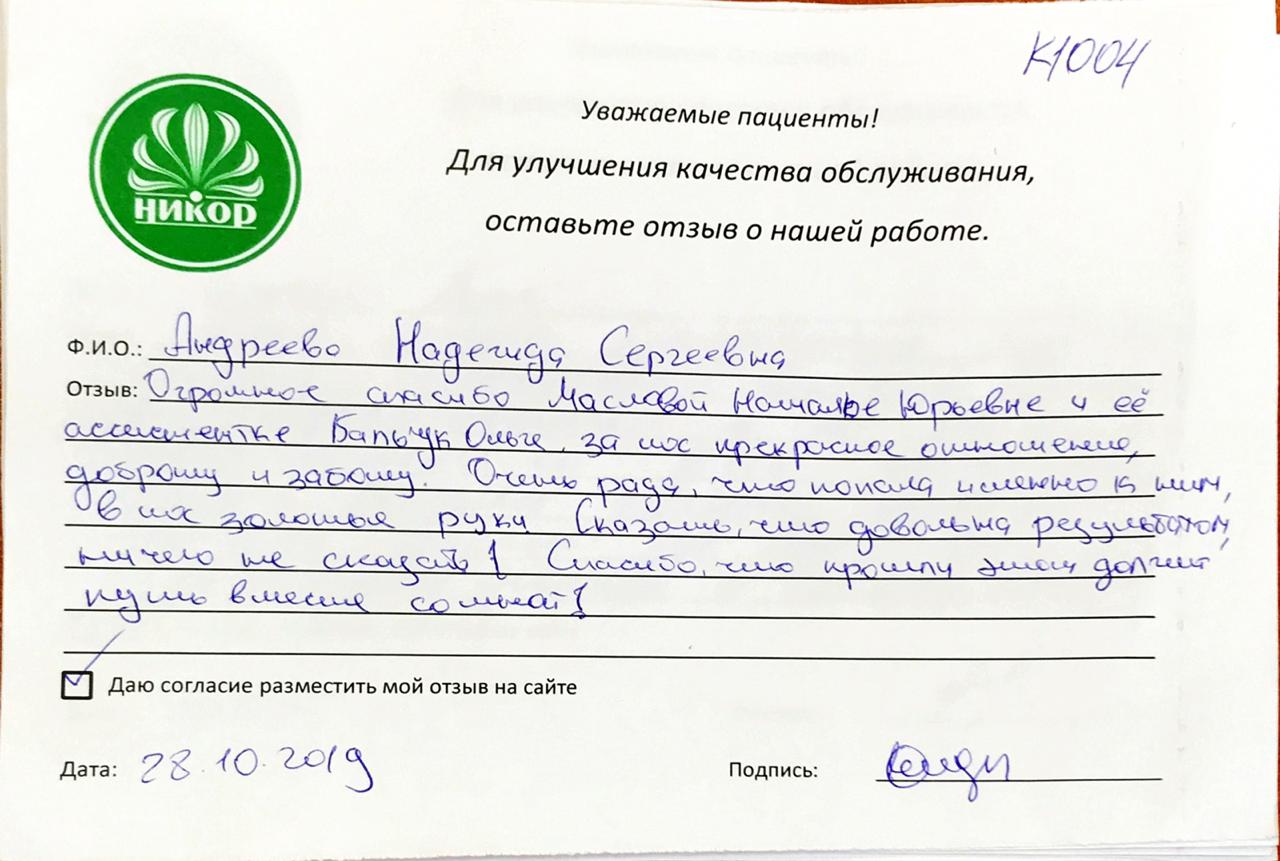 К1004
Уважаемые пациенты!
Для улучшения качества обслуживания,
оставьте отзыв о нашей работе.
НИКОР
Ф.И.О.: Андреева Надежда Сергеевна
Отзыв: Огромное спасибо Масловой Наталье Юрьевне и её
ассистентке Бапьчук Ольге, за их прекрасное отношение,
доброту и заботу. Очень рада, что попала именно к ним,
в их золотые руки Сказать, что довольна результатом,
ничего не сказать! Спасибо, что прошли этот долгий
путь вместе со мной!
Даю согласие разместить мой отзыв на сайте
Дата: 28.10.2019
Подпись: